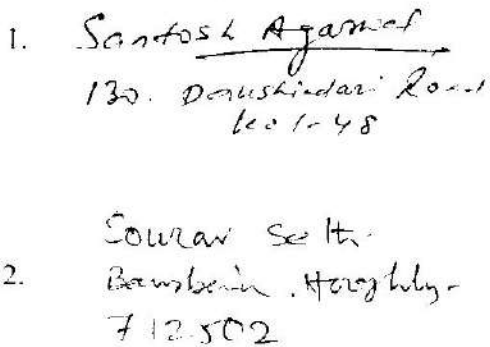 1. Santosh Agarwal
130. Road
Kol-48
2. Sourav Seth.
Bansberia. Hooghly-
712502